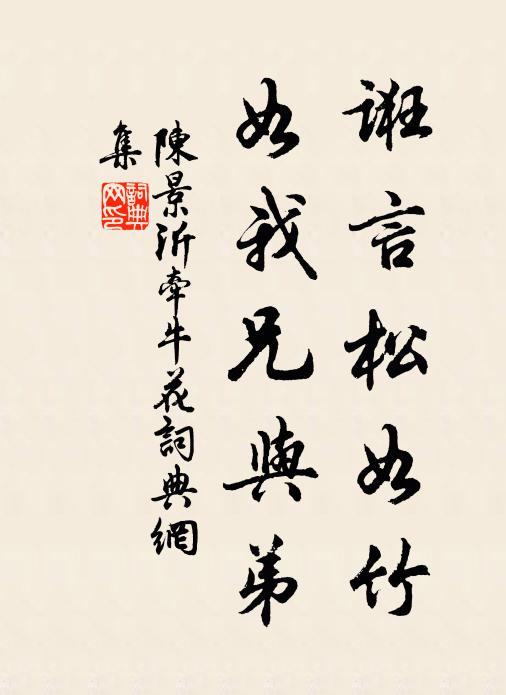 誑言松如竹
如我兄與弟
陳景沂牽牛花詞典網
集
詞典
网印